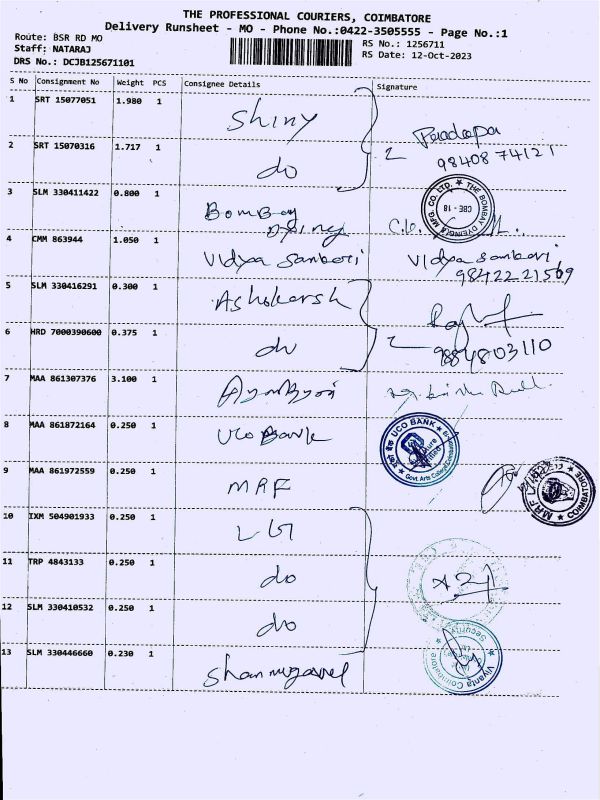 THE PROFESSIONAL COURIERS, COIMBATORE
Delivery Runsheet - MO - Phone No.:0422-3505555 - Page No.:1
Route: BSR RD MO
Staff: NATARAJ
DRS No.: DCJB125671101
RS No.: 1256711
RS Date: 12-Oct-2023
S No Consignment No Weight PCS Consignee Details Signature
1 SRT 15077051 1.980 1 Shiny
2 SRT 15070316 1.717 1 do
98408 74121
3 SLM 330411422 0.800 1 Bombay Dying
THE BOMBAY DYEING & MFG. CO. LTD.
CBE - 18
4 CMM 863944 1.050 1 Vidya Sanbori Vidya Sanbori
5 SLM 330416291 0.300 1
6 HRD 7000390600 0.375 1 do
9884803110
7 MAA 861307376 3.100 1
8 MAA 861872164 0.250 1 UCO Bank
UCO BANK
Govt. Arts College
9 MAA 861972559 0.250 1 MRF
MRF
COIMBATORE
10 IXM 504901933 0.250 1 LG
11 TRP 4843133 0.250 1 do
12 SLM 330410532 0.250 1 do
13 SLM 330446660 0.230 1 Shanmugavel
Security
Vivanta Coimbatore